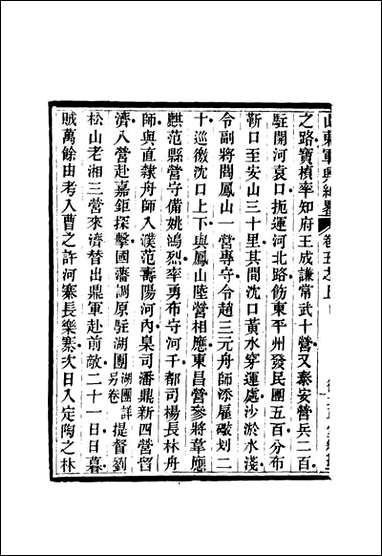 山東軍興紀略 卷五之上
之路寶楨率知府王成謙常武十營又泰安營兵二百
駐開河袁口扼運河北路飭東平州發民團五百分布
靳口至安山三十里其間沈口黃水穿運處沙淤水淺
令副將閻鳳山一營專守令趙三元舟師添雇礮划二
十巡徼沈口上下與鳳山陸營相應東昌營參將莩應
麒范縣營守備姚鴻烈率勇布守河干都司楊長林舟
師與直隸舟師入濮范壽陽河內臬司潘鼎新四營留
濟入營赴嘉鉅探擊國藩調原駐湖團湖團詳另卷提督劉
松山老湘三營來濟替出鼎軍赴前敵二十一日日暮
賊萬餘由考入曹之許河寨長樂寨次日入定陶之林